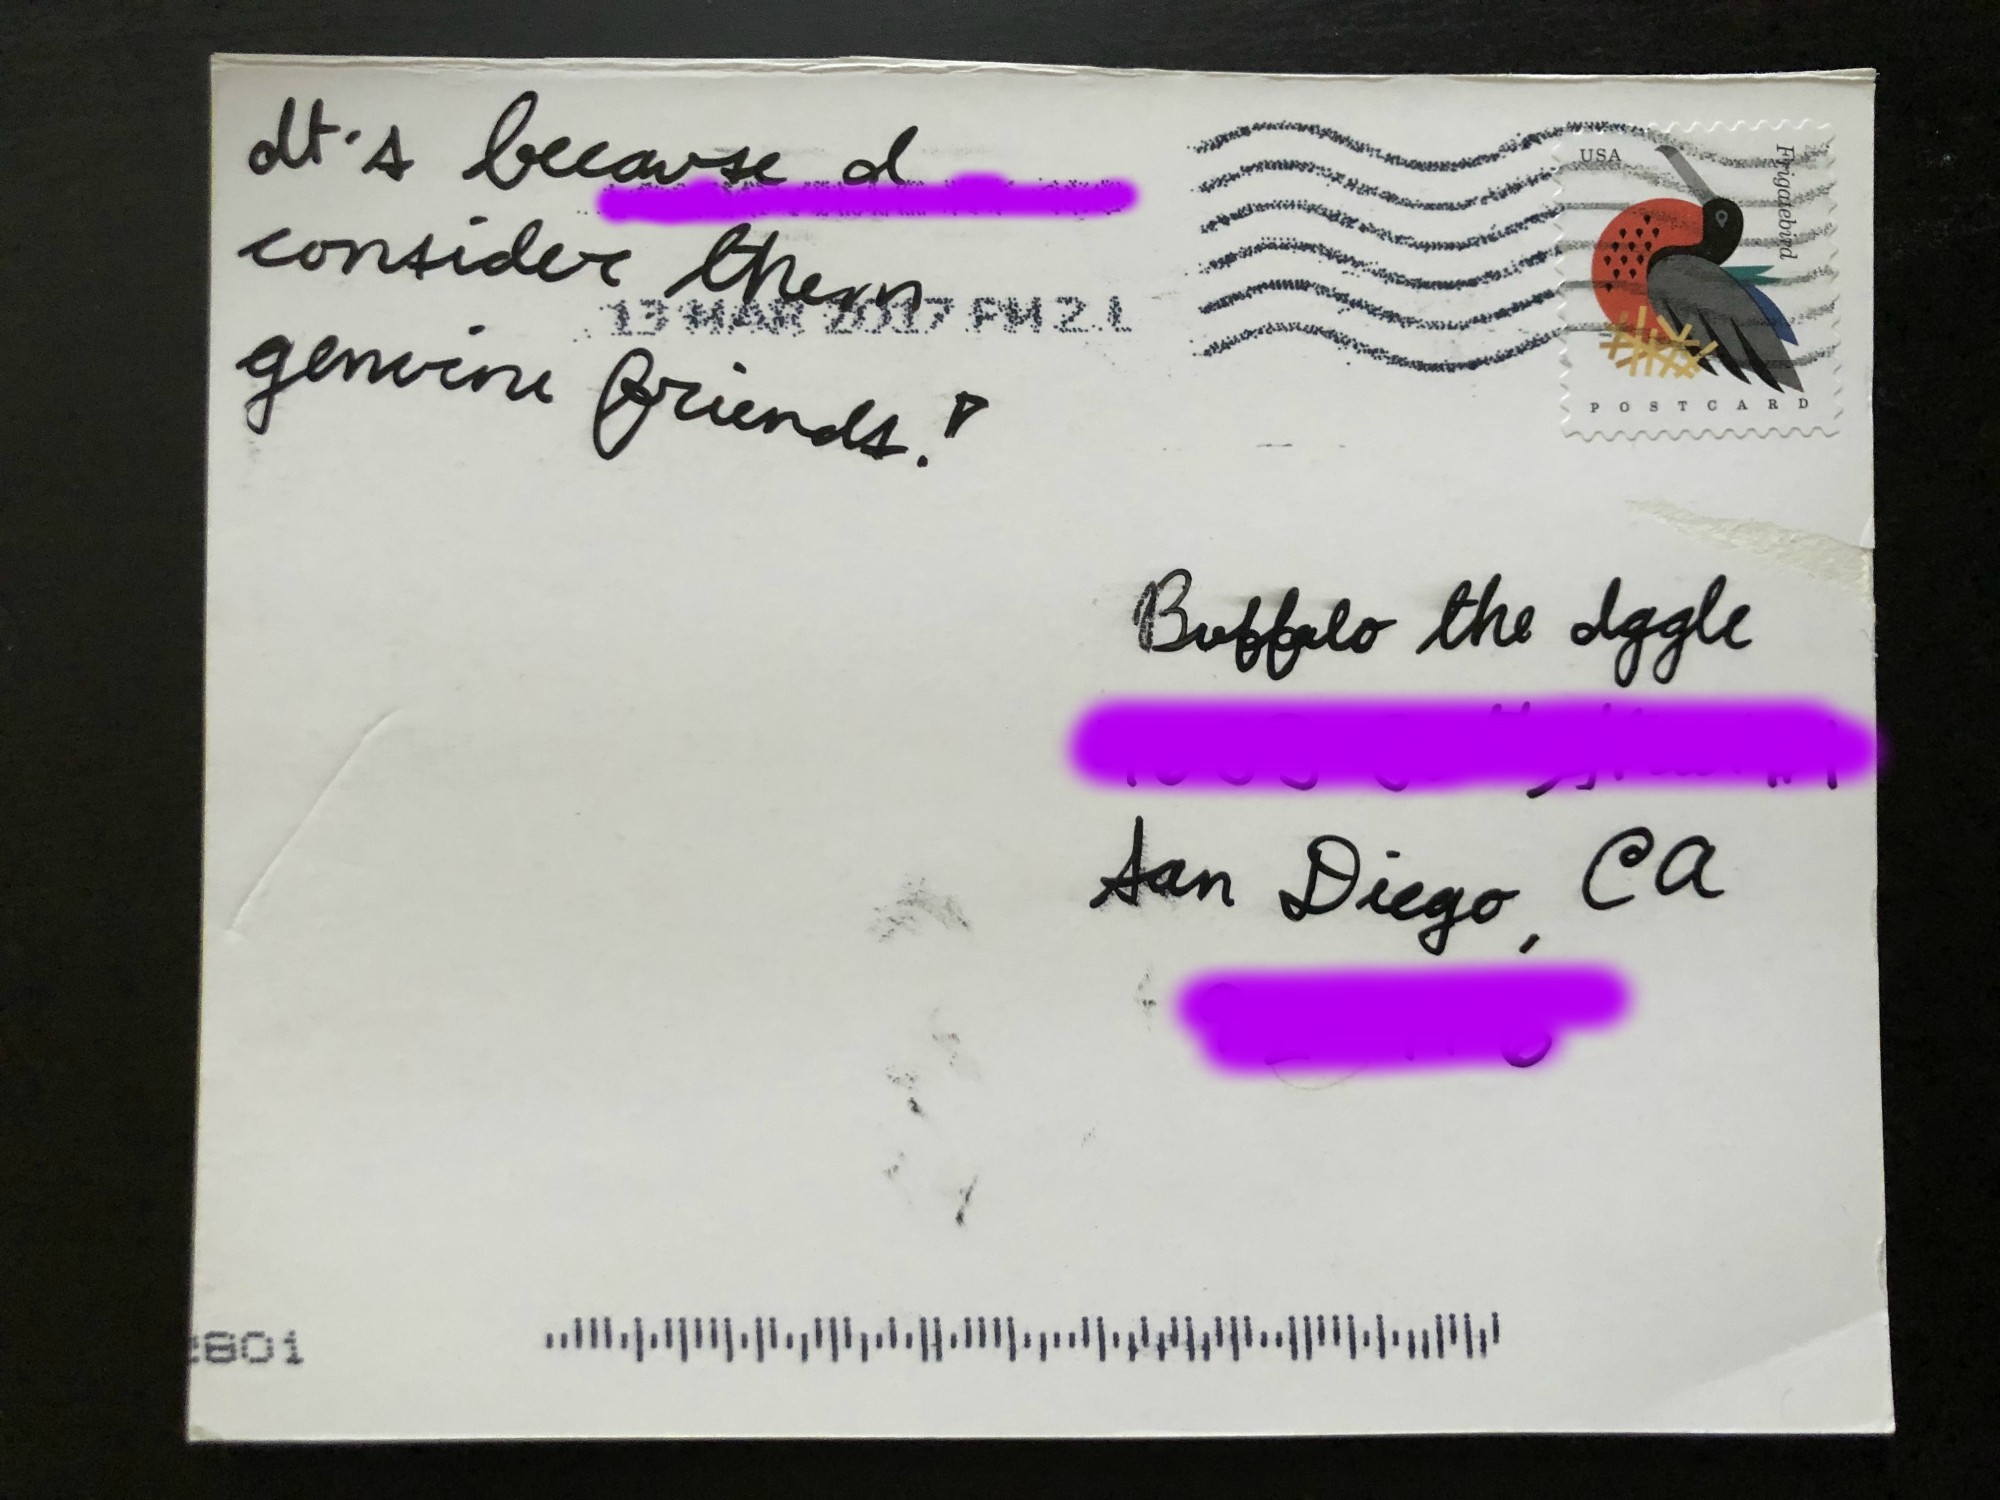 It's because I
consider them
genuine friends!
13 MAR 2017 PM 2 L
USA
Frigatebird
POSTCARD
Buffalo the Iggle
San Diego, CA
2801